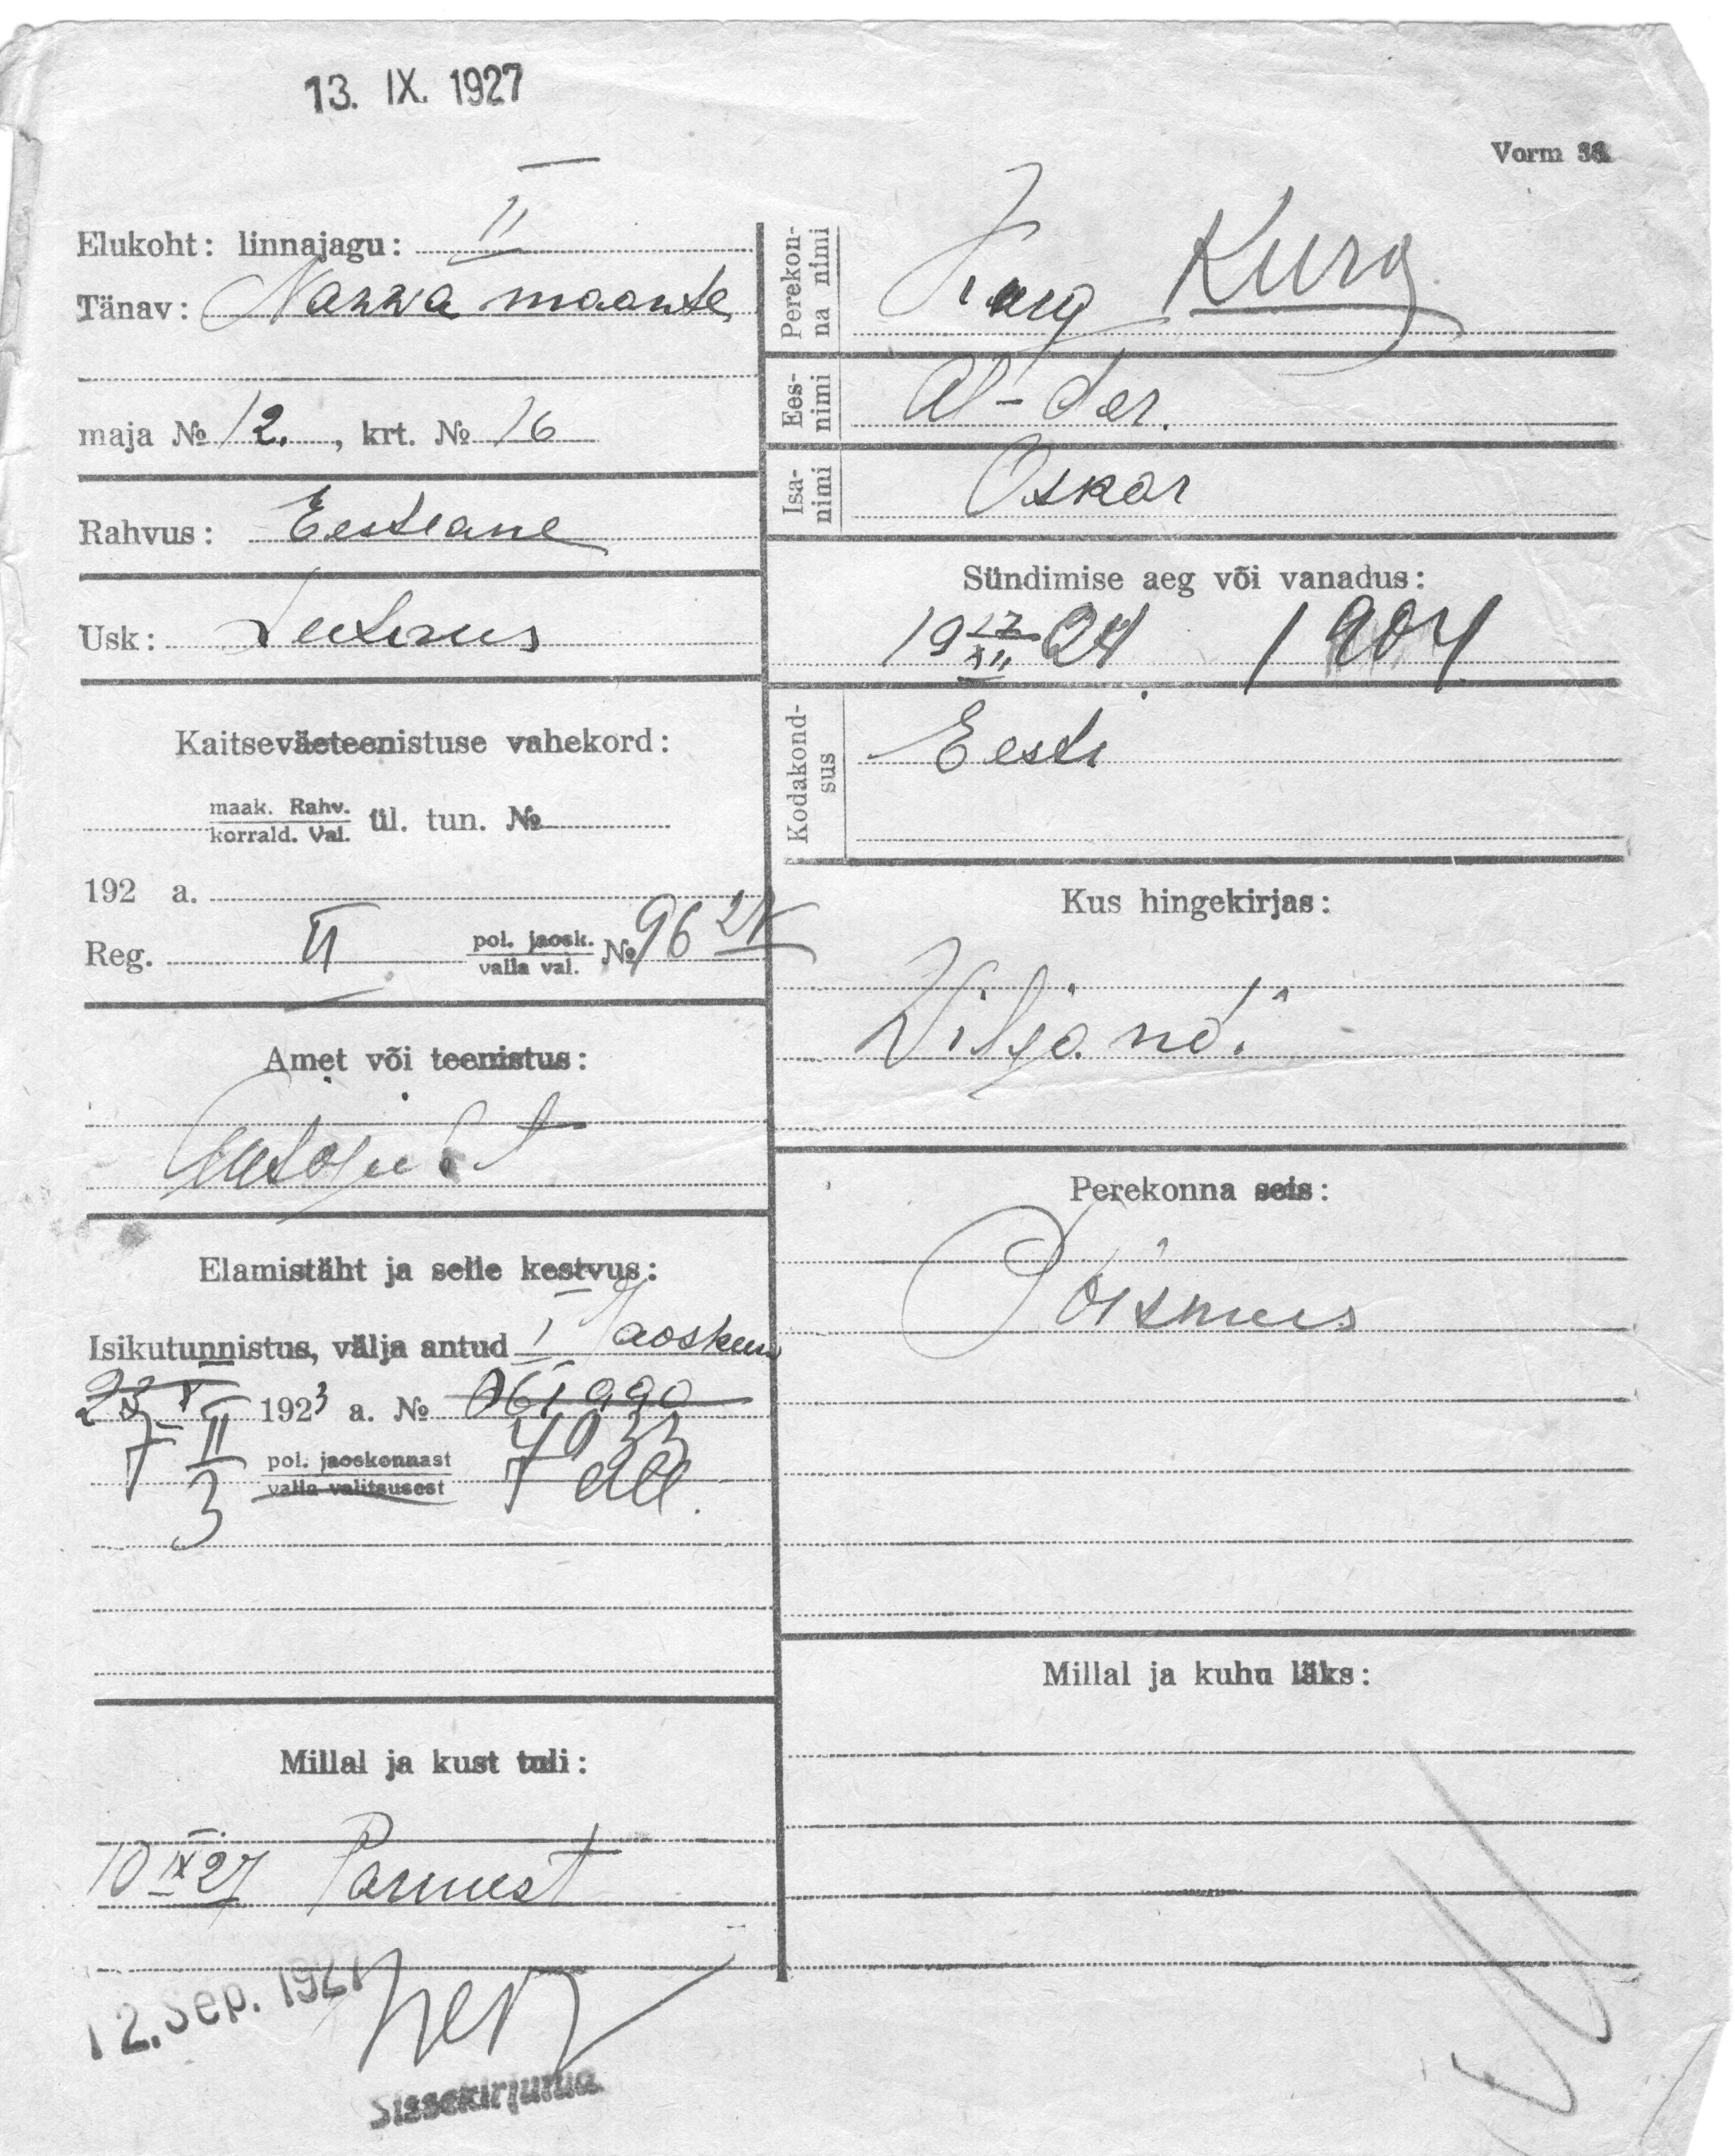 13. IX. 1927
Vorm
Elukoht: linnajagu: II
Tänav: Narva maante
maja № 12., krt. № 16
Rahvus: Eestlane
Usk: Luterus
Kaitseväeteenistuse vahekord:
maak. Rahv.
korrald. Val. ül. tun. №
192 a.
Reg. II pol. jaosk.
valla val. № 96
Amet või teenistus:
Elamistäht ja selle kestvus:
Isikutunnistus, välja antud I Jaoskon
23 V 1923 a. № 061990
7 II 4033
pol. jaoskonnast
valla valitsusest
3
Millal ja kust tuli:
10 IX 27 Pärnust
12. Sep. 1927
Sissekirjutia
Perekon-
na nimi
Kurg Kurg
Ees-
nimi
Al-der.
Isa-
nimi
Oskar
Sündimise aeg või vanadus:
19 17/XII 04 1904
Kodakond-
sus
Eesti
Kus hingekirjas:
Viljandi
Perekonna seis:
Poismees
Millal ja kuhu läks: